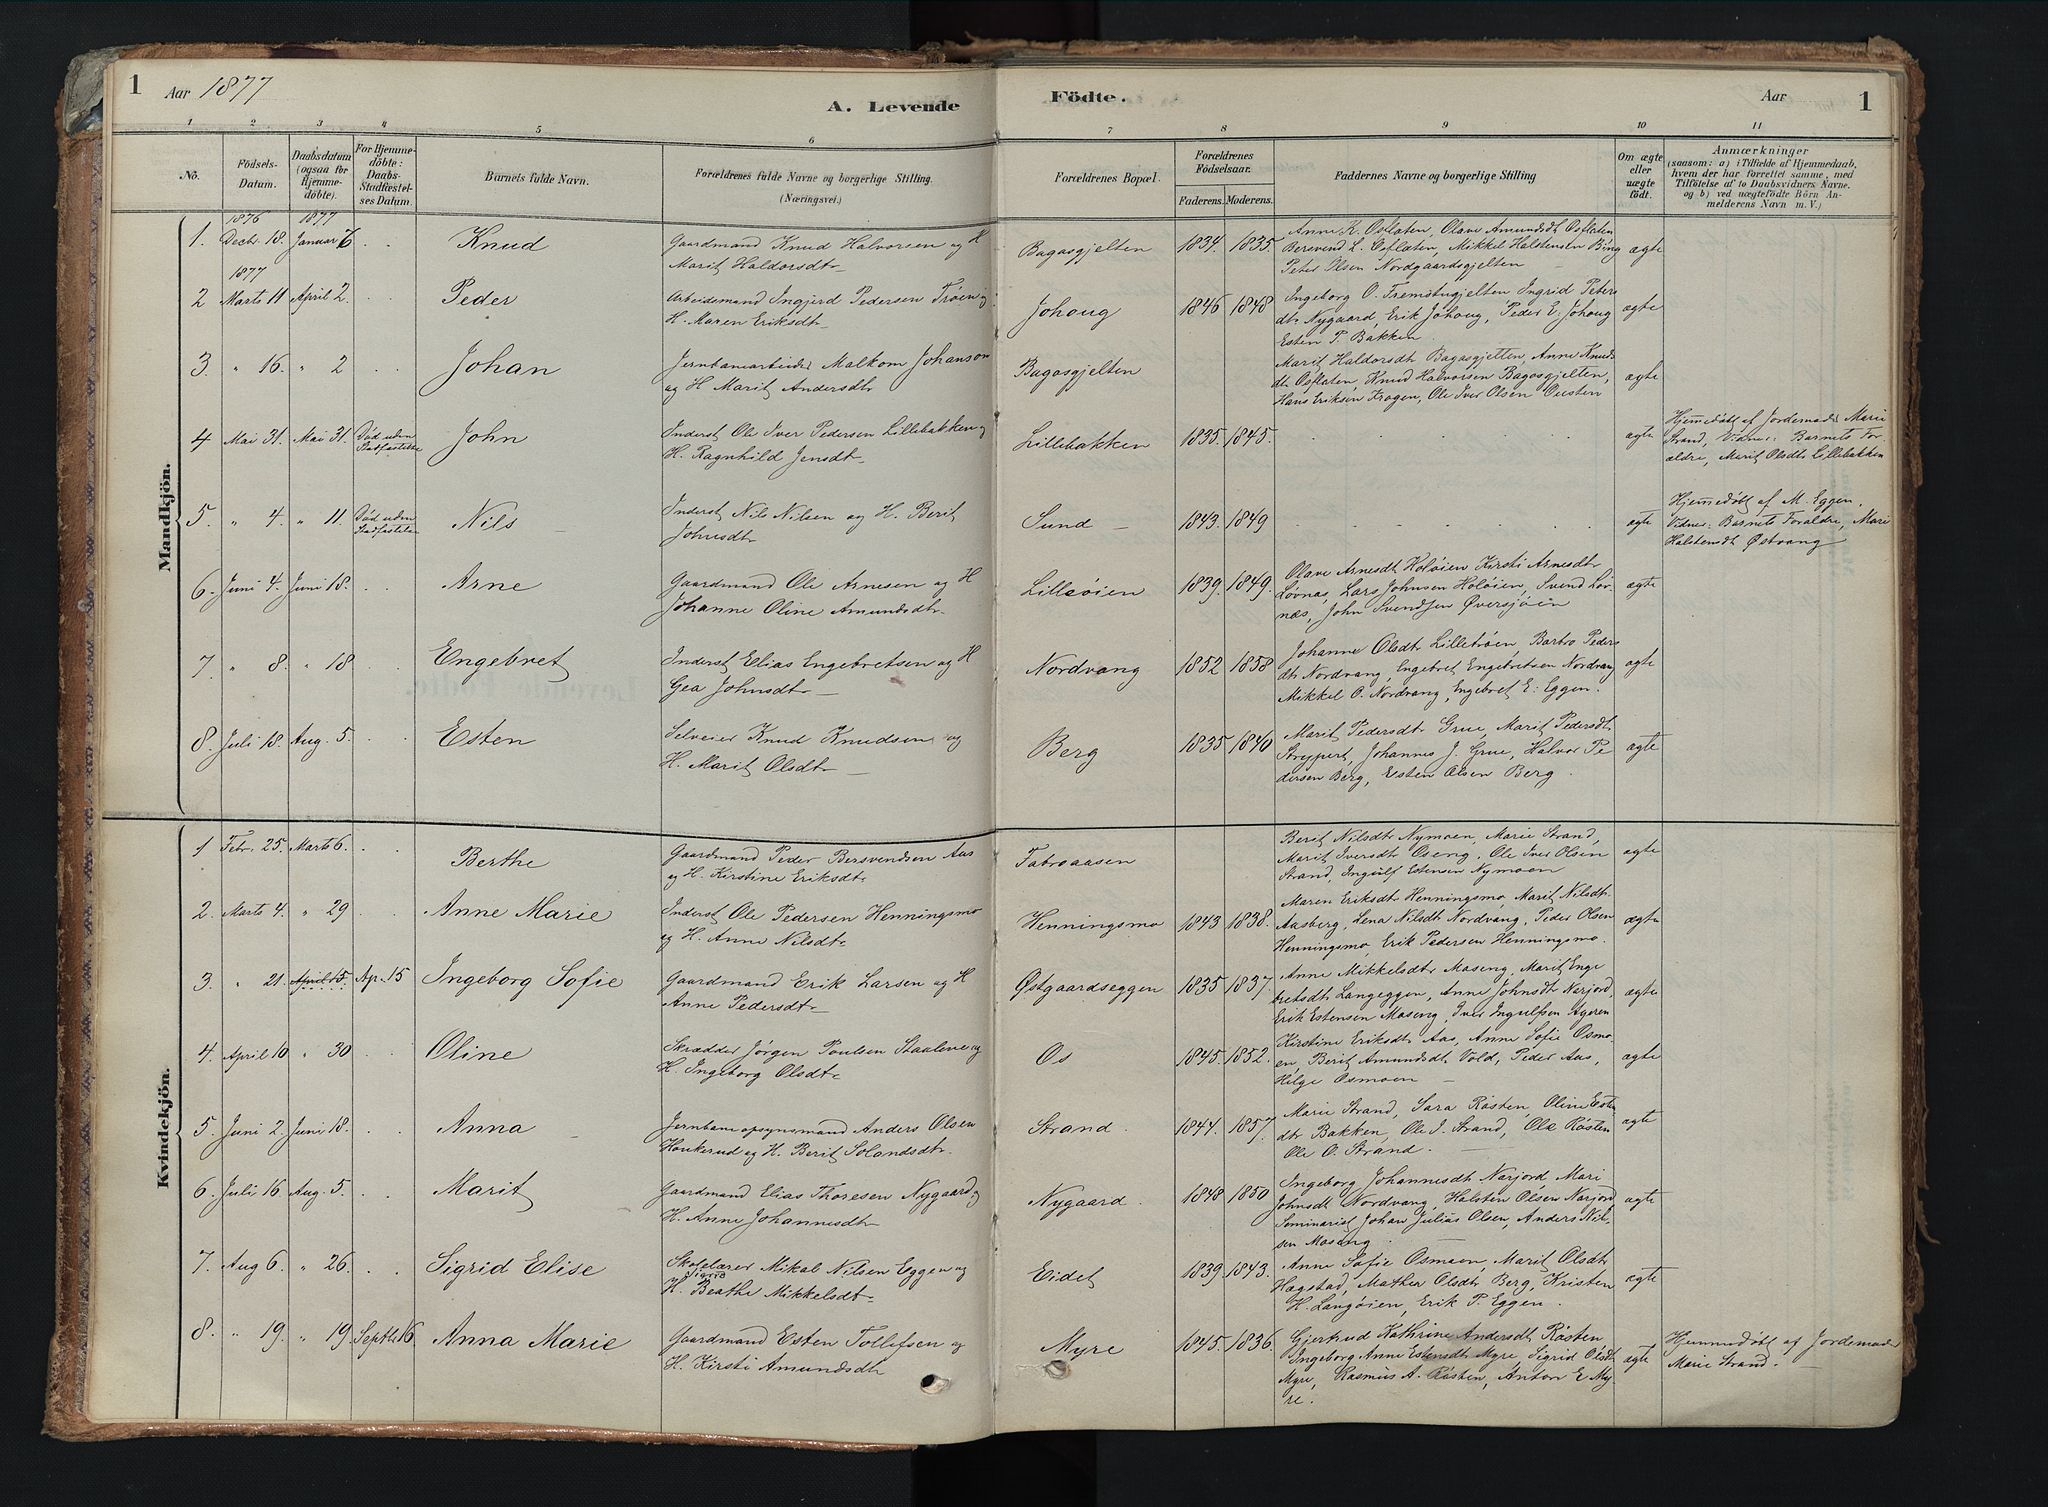 1 Aar 1877 A. Levende Födte. Aar 1
1 2 3 4 5 6 7 8 9 10 11
No. Födsels-Datum. Daabsdatum (ogsaa for Hjemmedöbte). For Hjemmedöbte: Daabs-Stadfæstelses Datum. Barnets fulde Navn. Forældrenes fulde Navne og borgerlige Stilling. (Næringsvei.) Forældrenes Bopæl. Forældrenes Födselsaar. Faderens. Moderens. Faddernes Navne og borgerlige Stilling Om ægte eller uægte født. Anmærkninger (saasom: a) i Tilfælde af Hjemmedaab, hvem der har forrettet samme, med Tilföielse af to Daabsvidners Navne, og b) ved uægtefödte Börn Anmelderens Navn m. V.)
Mandkjön.
1876 1877
1. Decbr. 18. Januar 6 Knud Gaardmand Knud Halvorsen og H
Marit Haldorsdtr Bagasgjelten 1834. 1835.
Anne K. Osflaten, Olave Amundsdt Osflaten
Bersvend L. Osflaten, Mikkel Halstensen Bing
Peter Olsen Nordgaardsgjelten ægte
1877
2 Marts 11 April 2. Peder Arbeidsmand Ingjerd Pedersen Trøen og
H. Maren Eriksdtr Johoug 1846 1848
Ingeborg O. Tremstugjelten Ingrid Peters
dtr Nygaard, Erik Johoug, Peder E. Johoug
Esten P. Bakken ægte
3. " 16. " 2 Johan Jernbanearbeider Malkom Johanson
og H. Marit Andersdtr Bagosgjelten
Marit Haldorsdt Bagosgjelten, Anne Knuds
dtr Osflaten, Knud Halvorsen Bagosgjelten,
Hans Eriksen Krogen, Ole Iver Olsen ægte
4 Mai 31. Mai 31. Død uden Stadfæstelse John Inderst Ole Iver Pedersen Lillebakken og
H. Ragnhild Jensdtr Lillebakken 1835. 1845. ægte
Hjemmedøbt af Jordemoder Marie
Strand, Vidner: Barnets For-
ældre, Marit Olsdtr Lillebakken
5. " 4. " 11. Død uden Stadfæstelse Nils Inderst Nils Nilsen og H. Berit
Johnsdtr Sund 1843. 1849 ægte
Hjemmedøbt af M. Eggen.
Vidner: Barnets Forældre, Mari
Halstensdt Østvang
6. Juni 4. Juni 18. Arne Gaardmand Ole Arnesen og H
Johanne Oline Amundsdtr Lilleøien 1839. 1849.
Olave Arnesdt Holøien Kirsti Arnesdtr
Løvnæs, Lars Johnsen Holøien, Svend Løv-
næs, John Svendsen Øversjøen ægte
7 " 8. " 18 Engebret Inderst Elias Engebretsen og H
Gea Johnsdtr Nordvang 1852 1858
Johanne Olsdtr Lilletrøen, Barbro Peders
dtr Nordvang, Engebret Engebretsen Nordvang
Mikkel O. Nordvang, Engebret E. Eggen. ægte
8. Juli 18. Aug. 5. Esten Selveier Knud Knudsen og
H. Marit Olsdtr Berg 1835 1840
Marit Pedersdt Grue, Marit Pedersdt
Strypert, Johannes J. Grue, Halvor Pe
dersen Berg, Esten Olsen Berg. ægte
Kvindekjön.
1 Febr. 25. Marts 6. Berthe Gaardmand Peder Bersvendsen Aas
og H. Kirstine Eriksdtr Tabroaasen
Berit Nilsdtr Nymoen, Marie Strand,
Marit Iversdtr Oseng, Ole Iver Olsen
Strand, Ingulf Estensen Nymoen ægte
2. Marts 4. " 29 Anne Marie Inderst Ole Pedersen Henningsmo
og H. Anne Nilsdtr Henningsmo 1843 1838.
Maren Eriksdtr Henningsmo, Marit Nilsdtr
Aasberg, Lena Nilsdt Nordvang, Peder Olsen
Henningsmo, Erik Pedersen Henningsmo. ægte
3. " 21. April 15. Ap. 15 Ingeborg Sofie Gaardmand Erik Larsen og H
Anne Pedersdtr Østgaardseggen 1835 1837.
Anne Mikkelsdtr Moseng, Marit Enge
bretsdt Langeggen, Anne Johnsdt Narjord,
Erik Estensen Moseng, Iver Ingulfsen Ageren ægte
4. April 10 " 30 Oline Skrædder Jørgen Poulsen Staalene og
H. Ingeborg Olsdtr Os 1845. 1852.
Kirstine Eriksdtr Aas, Anne Sofie Osmo
en, Berit Amundsdt Vold, Peder Aas,
Helge Osmoen ægte
5. Juni 2. Juni 18. Anna Jernbaneopsynsmand Anders Olsen
Houkerud og H. Berit Solandsdtr. Strand. 1844. 1857.
Marie Strand, Sara Røsten, Oline Esten
dtr Bakken, Ole J. Strand, Ole Røsten
Ole O. Strand. ægte
6. Juli 16. Aug. 5. Marit Gaardmand Elias Thoresen Nygaard og
H. Anne Johannesdtr Nygaard. 1848 1850
Ingeborg Johannesdt Narjord, Mari
Johnsdt Nordvang, Halsten Olsen Narjord,
Seminarist Johan Julius Olsen, Anders Nil-
sen Moseng. ægte
7. Aug 6. " 26. Sigrid Elise Skolelærer Mikal Nilsen Eggen og
H. Sigrid Beathe Mikkelsdtr Eidet 1839 1843.
Anne Sofie Osmoen, Marit Olsdt
Hagstad, Mathea Olsdtr Berg, Kristen
H. Langøien, Erik P. Eggen. ægte
8. " 19. " 19. Septb 16 Anna Marie Gaardmand Esten Tollefsen og
H. Kirsti Amundsdtr Myre 1845. 1836.
Gjertrud Kathrine Andersdt Røsten
Ingeborg Anne Estensdt Myre, Sigrid Olsdt
Myre, Rasmus A. Røsten, Anton E My-
re. ægte
Hjemmedøbt af Jordemoder
Marie Strand.